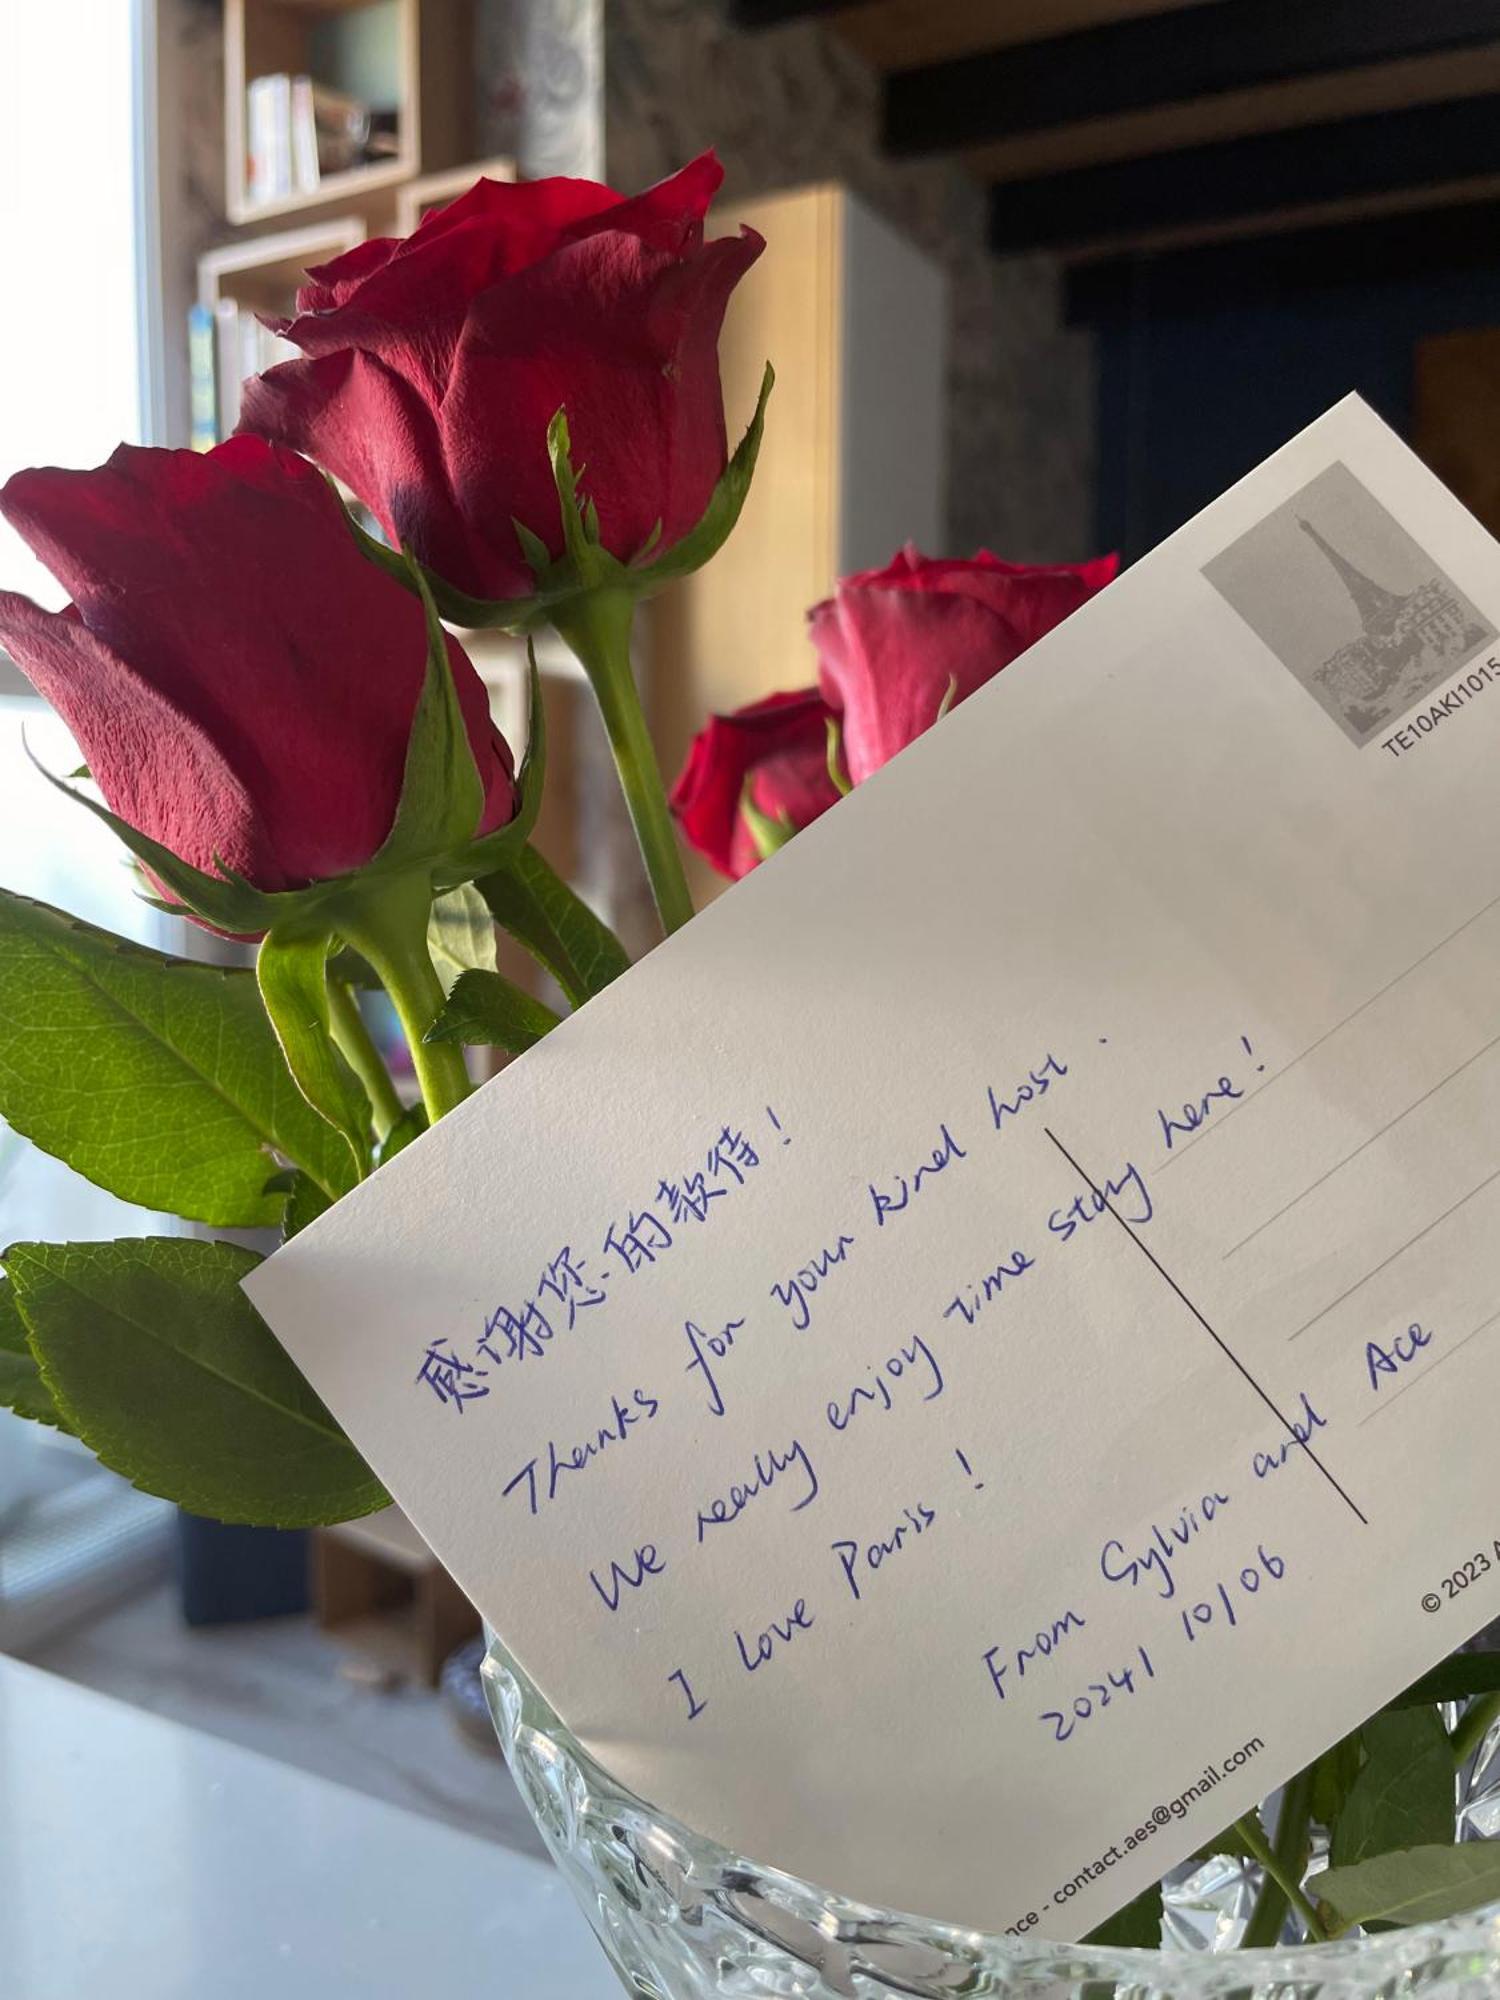 TE10AKI1015
感谢您的款待!
Thanks for your kind host.
We really enjoy time stay here!
I love Paris!
From Sylvia and Ace
2024/10/06
© 2023 A
nce - contact.aes@gmail.com